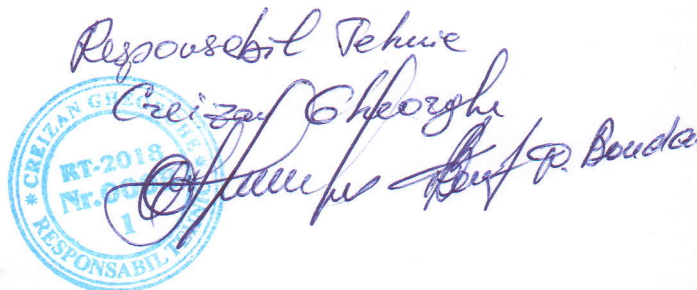 Responsabil Tehnic
Creizan Gheorghe
P. Bondar
CREIZAN GHEORGHE
RT-2018
Nr.
1
RESPONSABIL TEHNIC